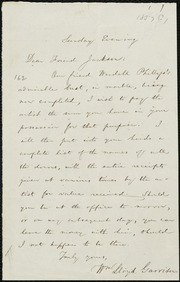 Sunday Evening
Dear Friend Jackson:
Our friend Wendell Phillips's
admirable bust, in marble, being
now completed, I wish to pay the
artist the sum you have in your
possession for that purpose. I
will then put into your hands a
complete list of the names of all
the donors, with the entire receipts
given at various times by the ar-
tist for value received. Should
you be at the office to-morrow,
or on any subsequent day, you can
leave the money with him, should
I not happen to be there.
Truly yours,
Wm. Lloyd Garrison